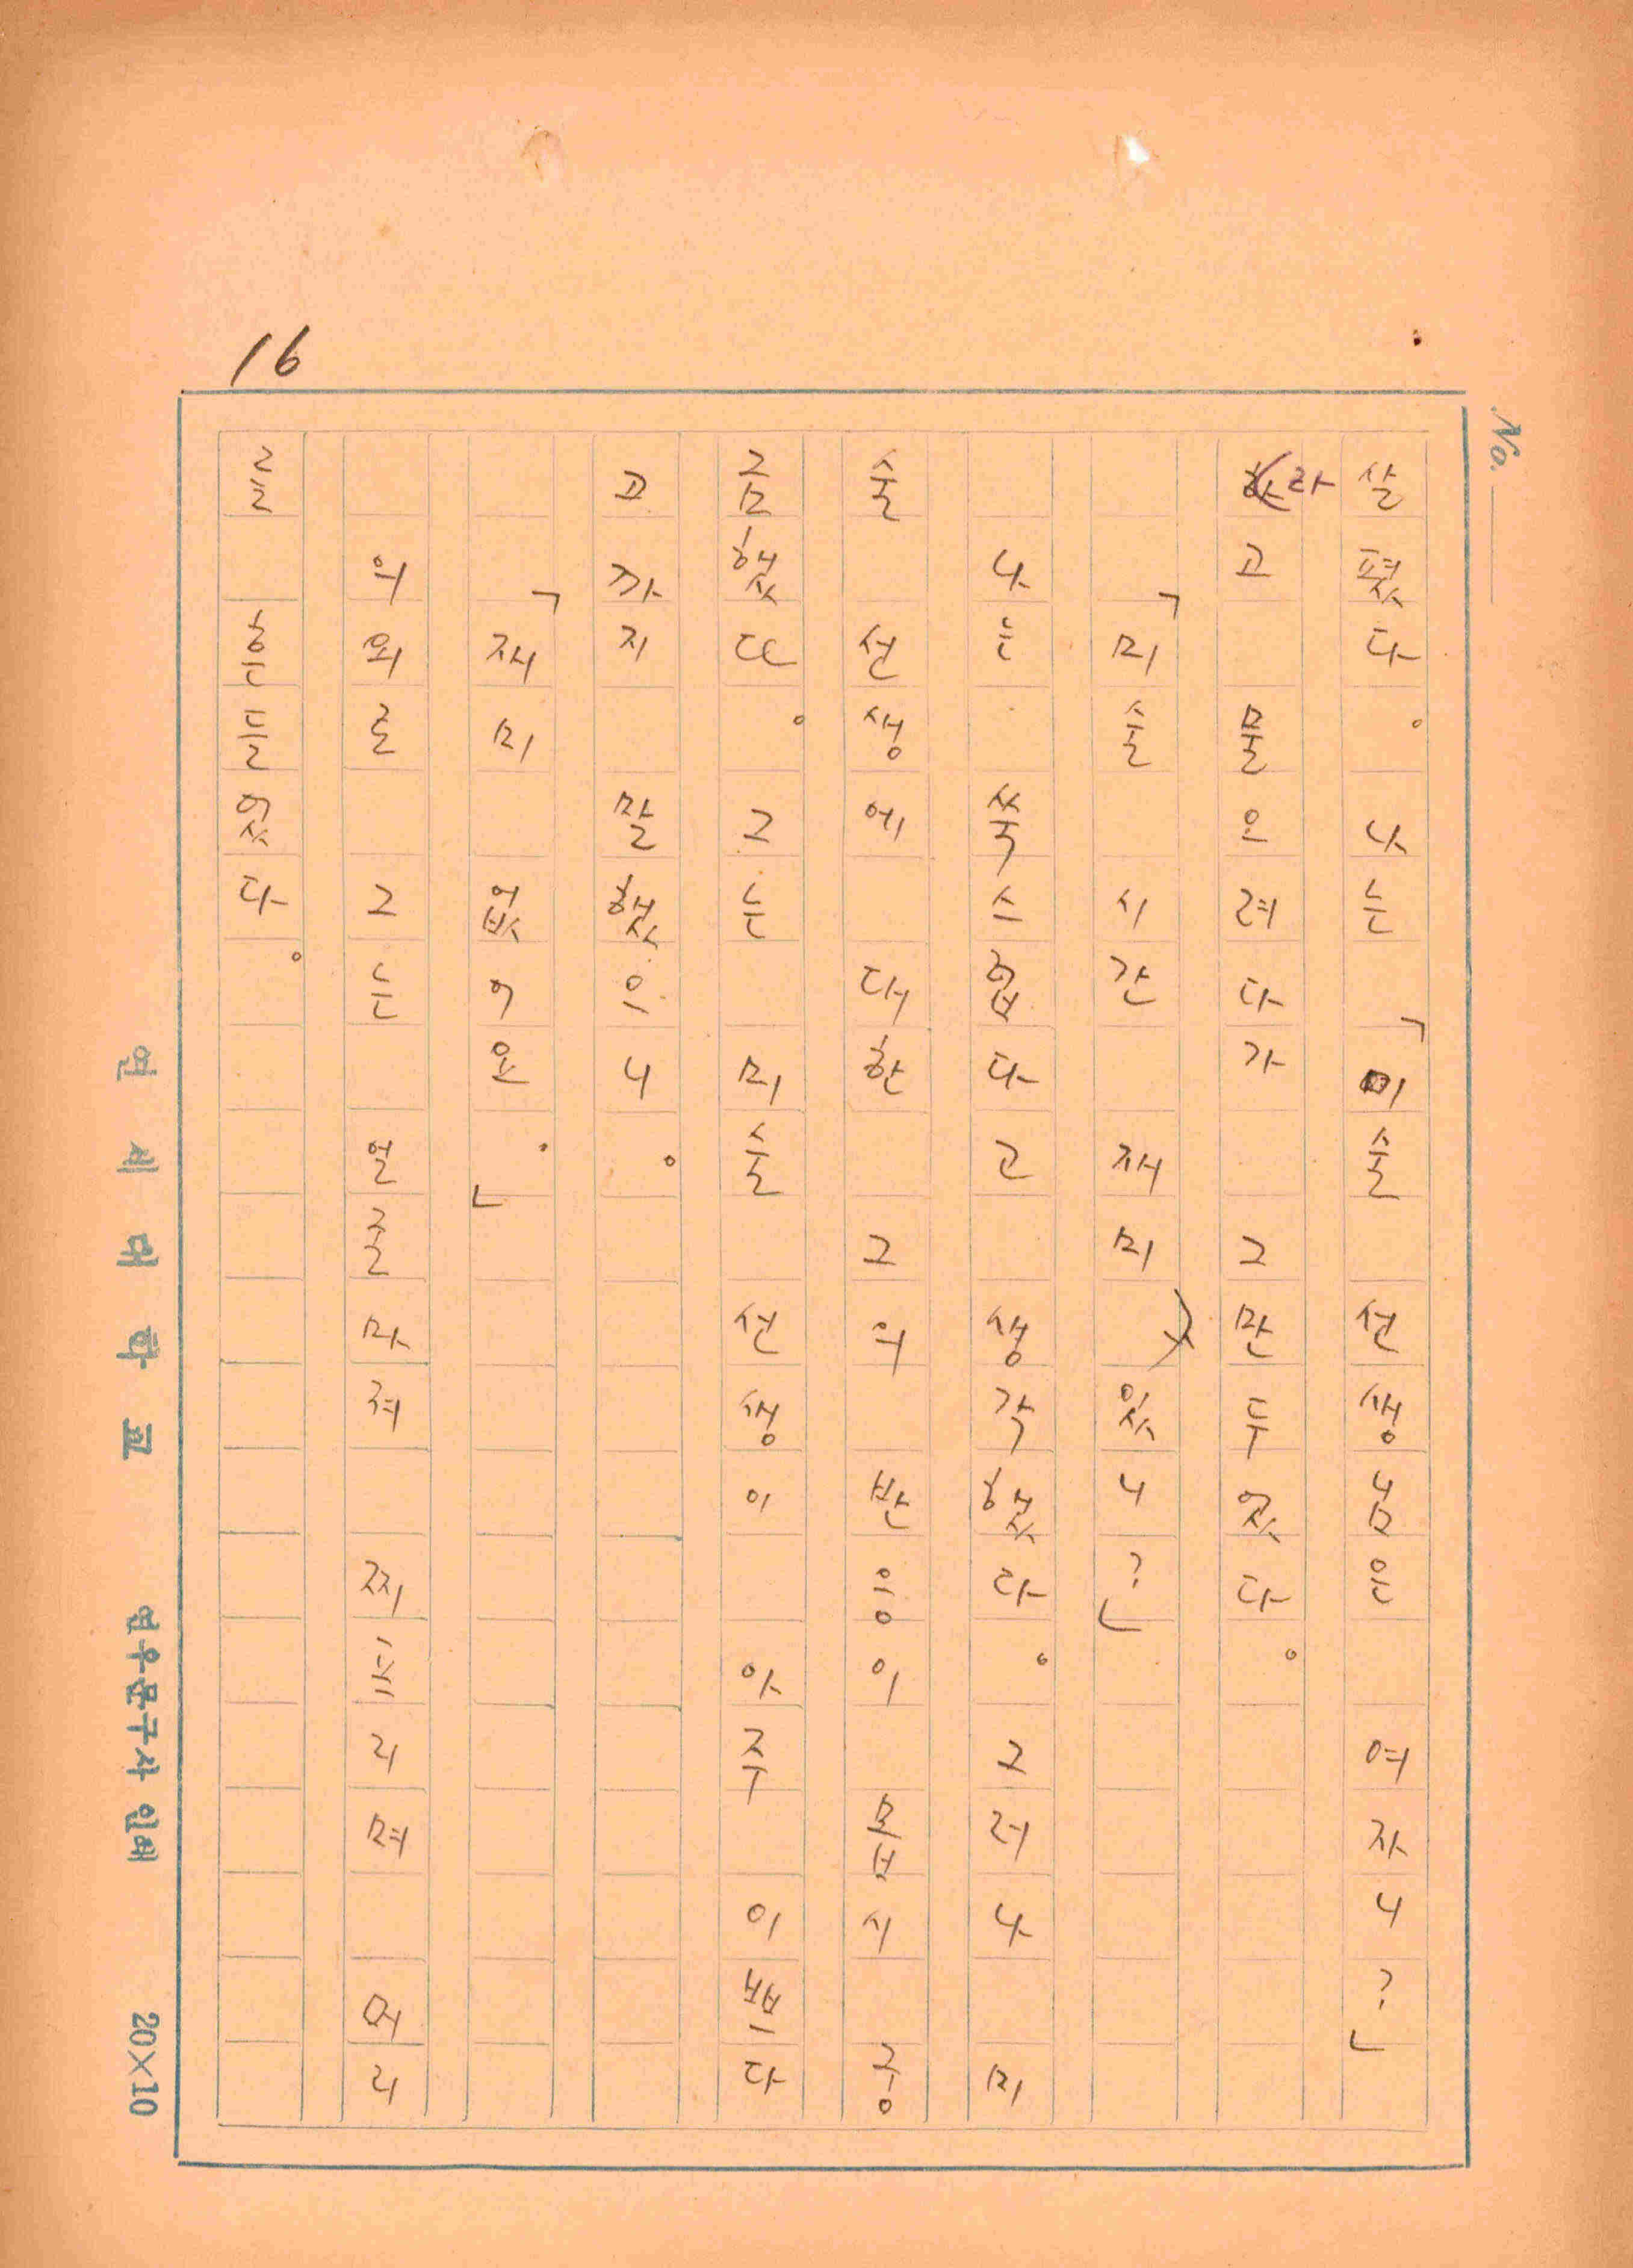 No.
16
살폈다。나는 「미술 선생님은 여자니?」
라고 물으려다가 그만두었다。
「미술 시간 재미 있니?」
나는 쑥스럽다고 생각했다。그러나 미
술 선생에 대한 그의 반응이 몹시 궁
금했다。그는 미술 선생이 아주 이쁘다
고까지 말했으니。
「재미 없어요.」
의외로 그는 얼굴마저 찌프리며 머리
를 흔들었다。
연세대학교 연우문구사 인쇄 20×10